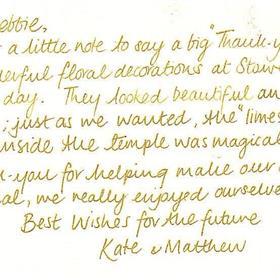 ebbie,
a little note to say a big "Thank-y
erful floral decorations at Stow
day. They looked beautiful an
just as we wanted, the "limes
inside the temple was magical
-you for helping make our
al, we really enjoyed ourselve
Best Wishes for the future
Kate & Matthew